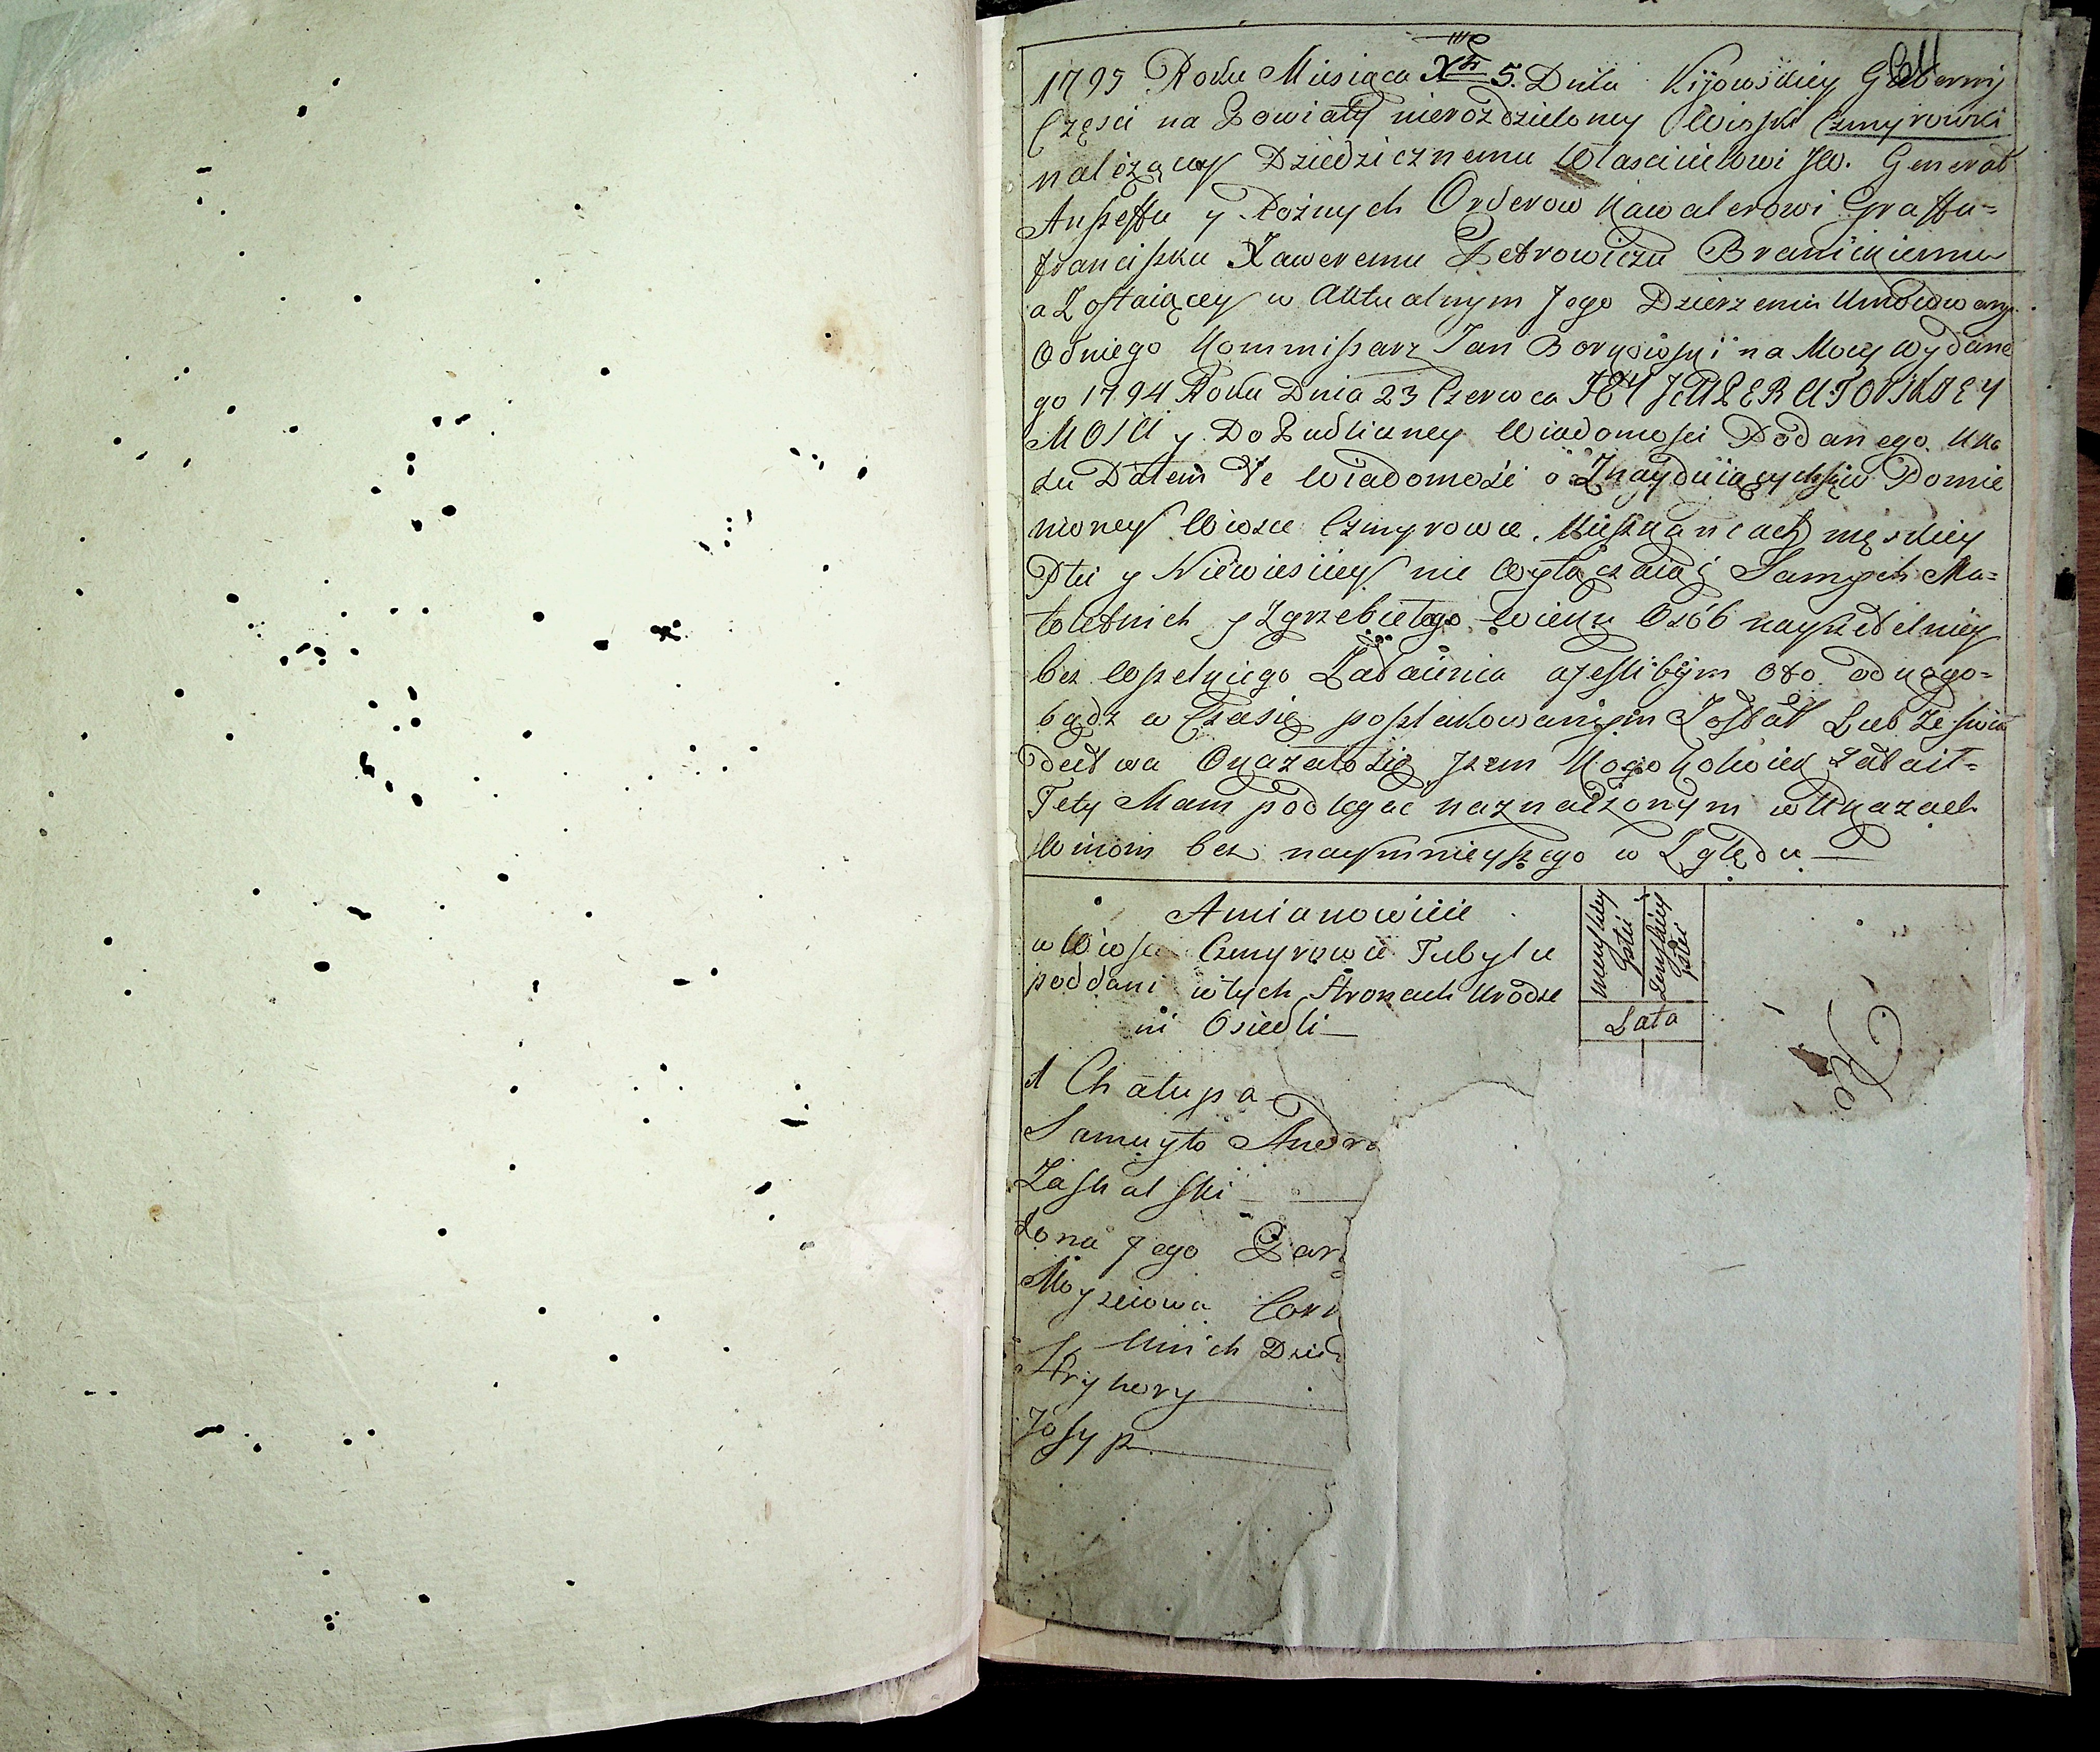 1795 Roku Miesiąca Xbr 5. Dnia Kijowskiey Gubernij
Częsci na Powiaty nierozdzieloney Wioski Czmyrowki
należącey Dziedzicznemu Włascicielowi JW. Generał
Anszeffu y Rożnych Orderow Kawalerowi Graffu=
Franciszku Xaweremu Petrowiczu Branickiemu
a Zostaiącey w Aktualnym Jego Dzierzeniu Umocowany
Odniego Kommissarz Jan na Mocy wydane
go 1794 Roku Dnia 23 Czerwca JEY JMPERATORSKIEY
MOSCI y Do Publiczney Wiadomosci Podanego Uka
zu Dałem Te Wiadomość o Znayduiącychsię w Pomie
nioney Wiosce Czmyrowce Mieszkancach męskiey
Płci y Niewiesciey nie wyłączaiąc Samych Ma=
łoletnich y Zgrzebiełego wieku Osób nayrzetelniey
bez wszelkiego Zataienia a jeslibym oto od kogo=
bądz w Czasie poszlakowanym Został Lub ze swia
dectwa Okazałosię Jzem Kogokolwiek Zataił=
Tety Mam podlegać naznaczonym w Ukazach
Winom bez naymnieyszego w Zględu
Amianowicie
w Wiosce Czmyrowce Tubylce
poddani wtych Stronach Urodze
ni Osiedli
menskiey Płci
Zenskiey Płci
Lata
1 Chałupa
Samuyło Andr
Zaskalski
Zona Jego Par
Moyzeiowa Cork
Unich Dzie
Hryhory
Josyp